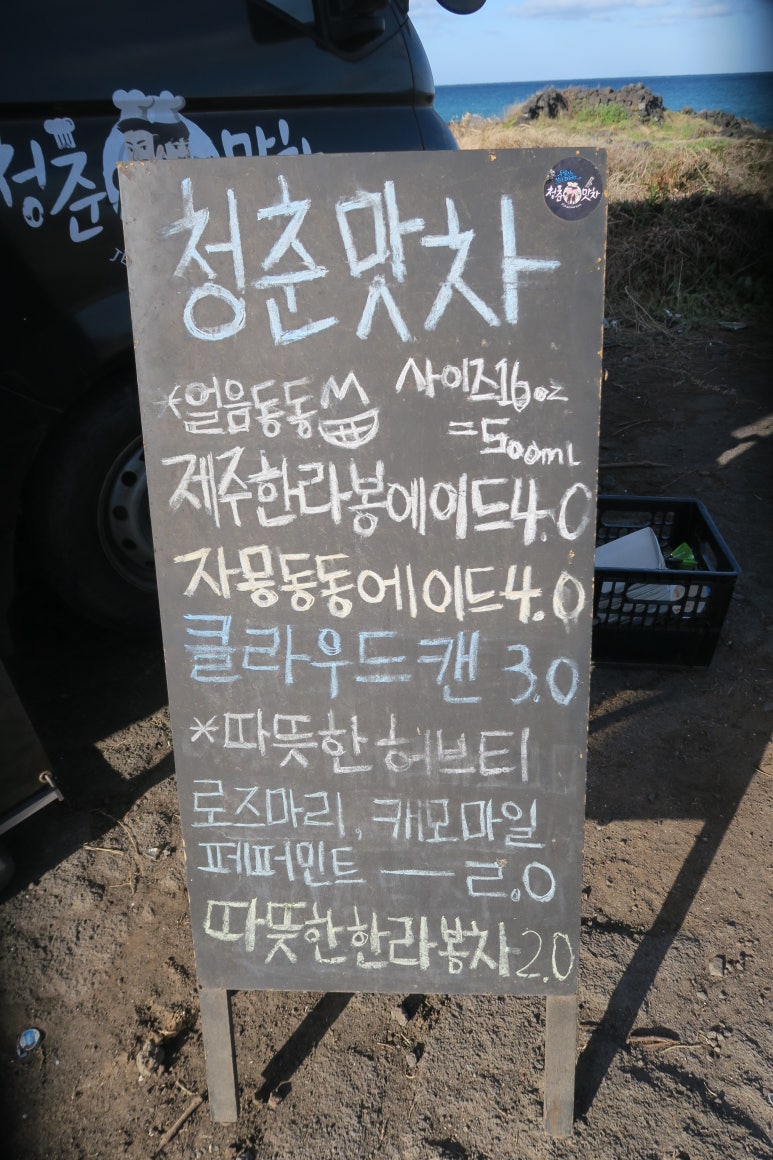 청춘 맛차
청춘맛차
청춘맛차
*얼음동동 사이즈16oz
=500mL
제주한라봉에이드4.0
자몽동동에이드4.0
클라우드캔 3.0
*따뜻한 허브티
로즈마리, 캐모마일
페퍼민트 — 2.0
따뜻한한라봉차2.0